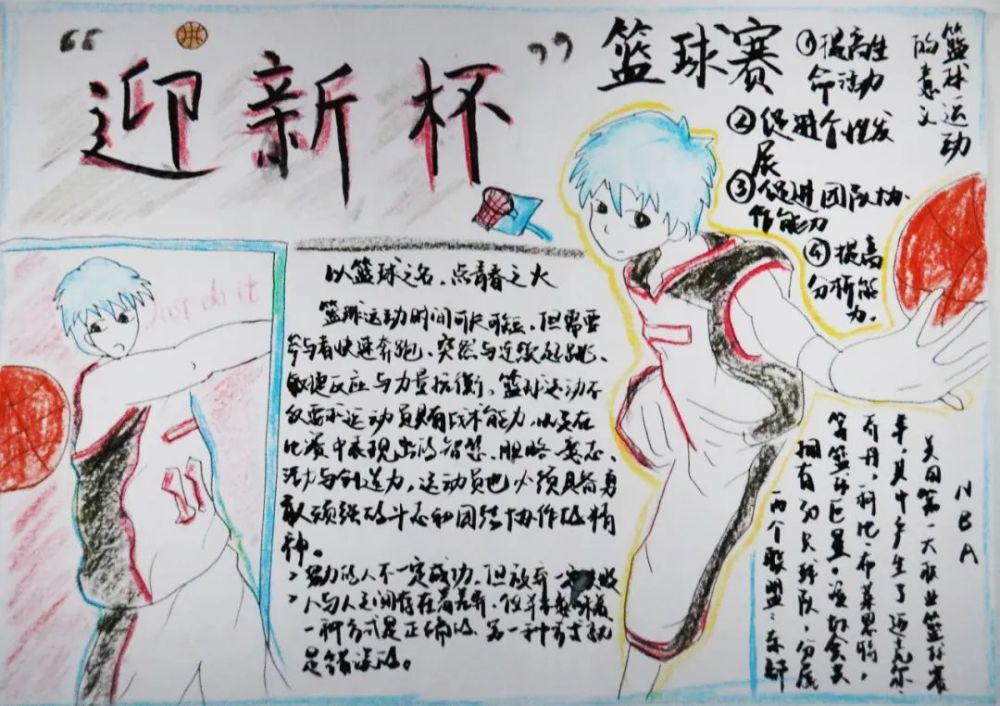 “迎新杯”
篮球赛
篮球运动
的意义
①提高生
命活力
②促进个性发
展
③促进团队协
作能力
④提高
分析能
力.
Just do it
以篮球之名、点青春之火
篮球运动时间可长可短、但需要
参与者快速奔跑、突然与连续起跳、
敏捷反应与力量抗衡。篮球运动不
仅要求运动员具有战术能力、以及在
比赛中表现出的智慧、胆略、意志、
活力与创造力。运动员也必须具备勇
敢顽强的斗志和团结协作的精
神。
努力的人不一定成功、但放弃一定失败
人与人之间存在着差异、但并不意味着
一种方式是正确的、另一种方式就
是错误的。
11
NBA
美国第一大职业篮球赛
事，其中产生了迈克尔·
乔丹、科比·布莱恩特，
等篮球巨星。该协会
拥有30支球队，分属
两个联盟：东部